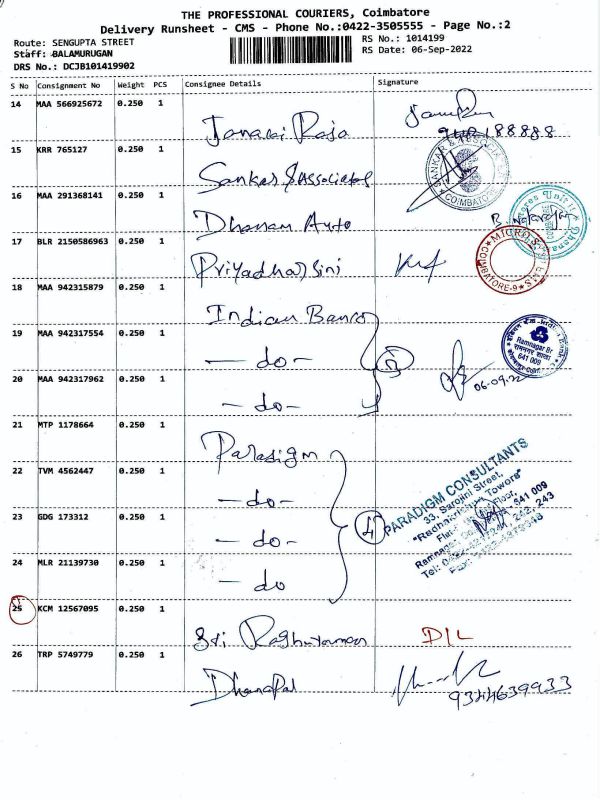 THE PROFESSIONAL COURIERS, Coimbatore
Delivery Runsheet - CMS - Phone No.:0422-3505555 - Page No.:2
Route: SENGUPTA STREET
RS No.: 1014199
Staff: BALAMURUGAN
RS Date: 06-Sep-2022
DRS No.: DCJB101419902
S No Consignment No Weight PCS Consignee Details Signature
14 MAA 566925672 0.250 1
Janaki Raja
188888
15 KRR 765127 0.250 1
Sankar & Associates
SANKAR & ASSOCIATES
COIMBATORE
16 MAA 291368141 0.250 1
Dhanam Auto
B. Natarajan
17 BLR 2150586963 0.250 1
Priyadharsini
MICRO
COIMBATORE-9
18 MAA 942315879 0.250 1
Indian Bank
19 MAA 942317554 0.250 1
- do -
3
Ramnagar Br
641 009
20 MAA 942317962 0.250 1
- do -
06.09.22
21 MTP 1178664 0.250 1
Paradigm
22 TVM 4562447 0.250 1
- do -
PARADIGM CONSULTANTS
33, Sarojini Street,
23 GDG 173312 0.250 1
- do -
4
24 MLR 21139730 0.250 1
- do
25 KCM 12567095 0.250 1
Sri Raghuraman
D/L
26 TRP 5749779 0.250 1
Dhanapal
9344639933